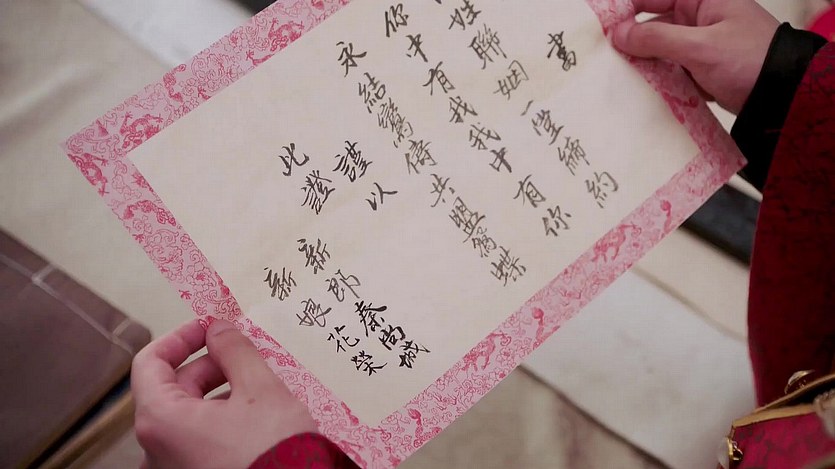 書
姓聯姻一堂締約
你中有我我中有你
永結鸞儔共盟鴛蝶
謹以
此證
新郎 秦尚城
新娘 花榮